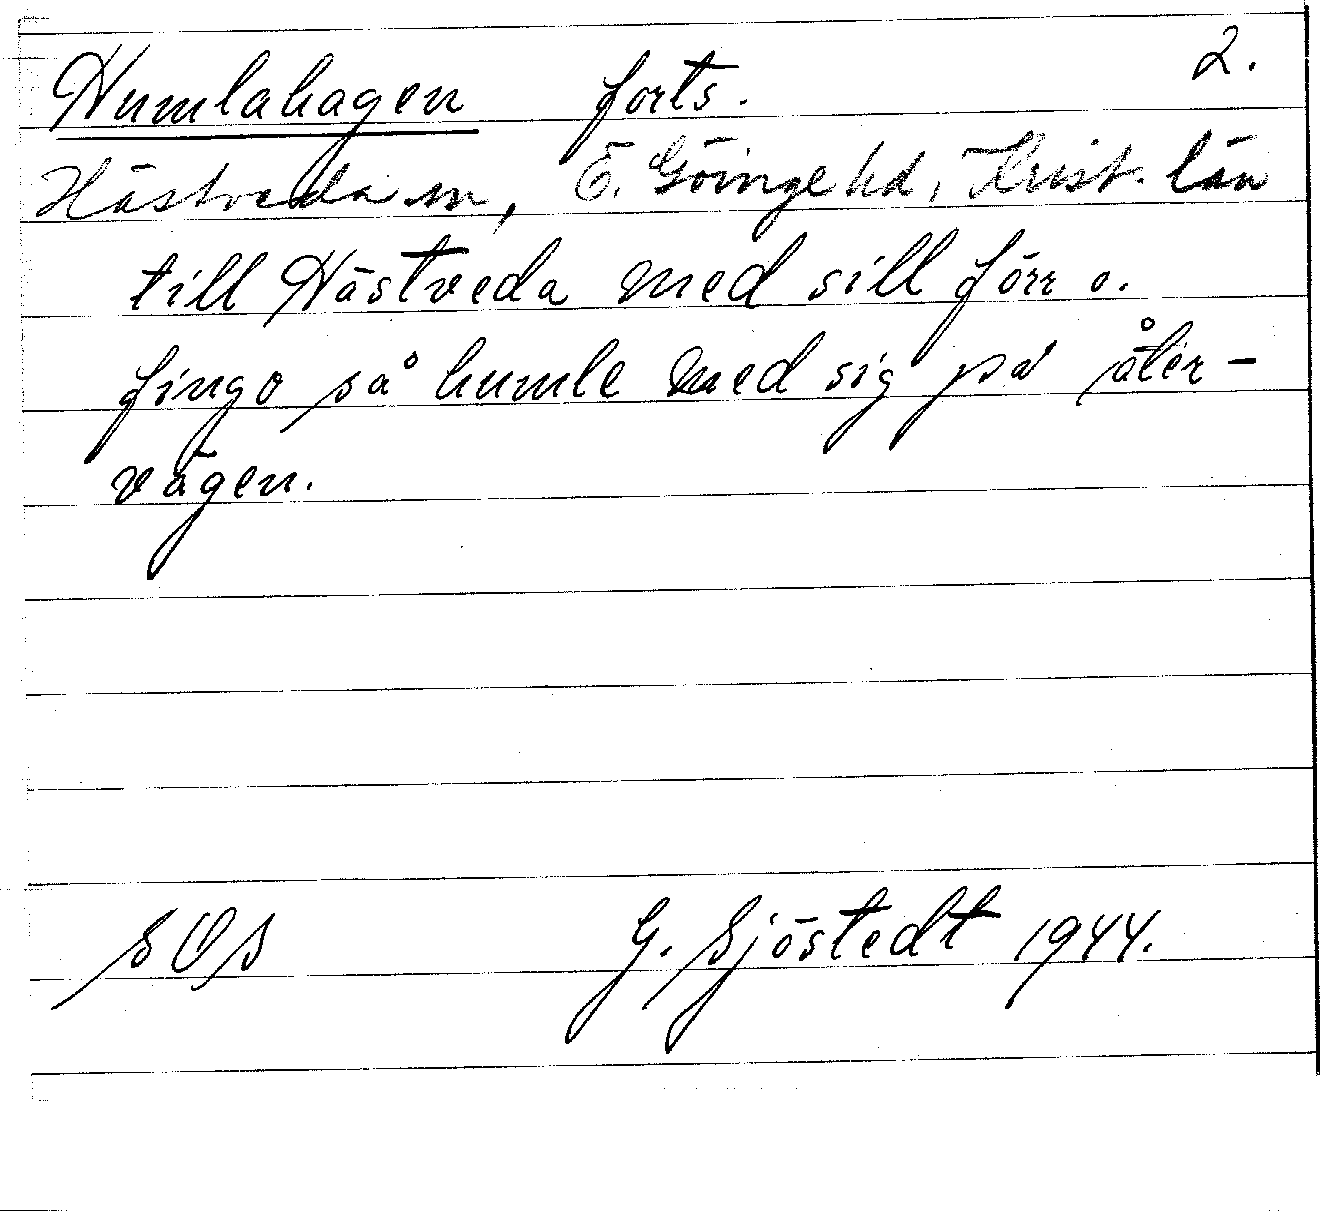 Humlahagen forts. 2.
Hästveda sn, Ö. Göinge hd, Krist. län
till Hästveda med sill förr o.
fingo så humle med sig på åter-
vägen.
SOS G. Sjöstedt 1944.